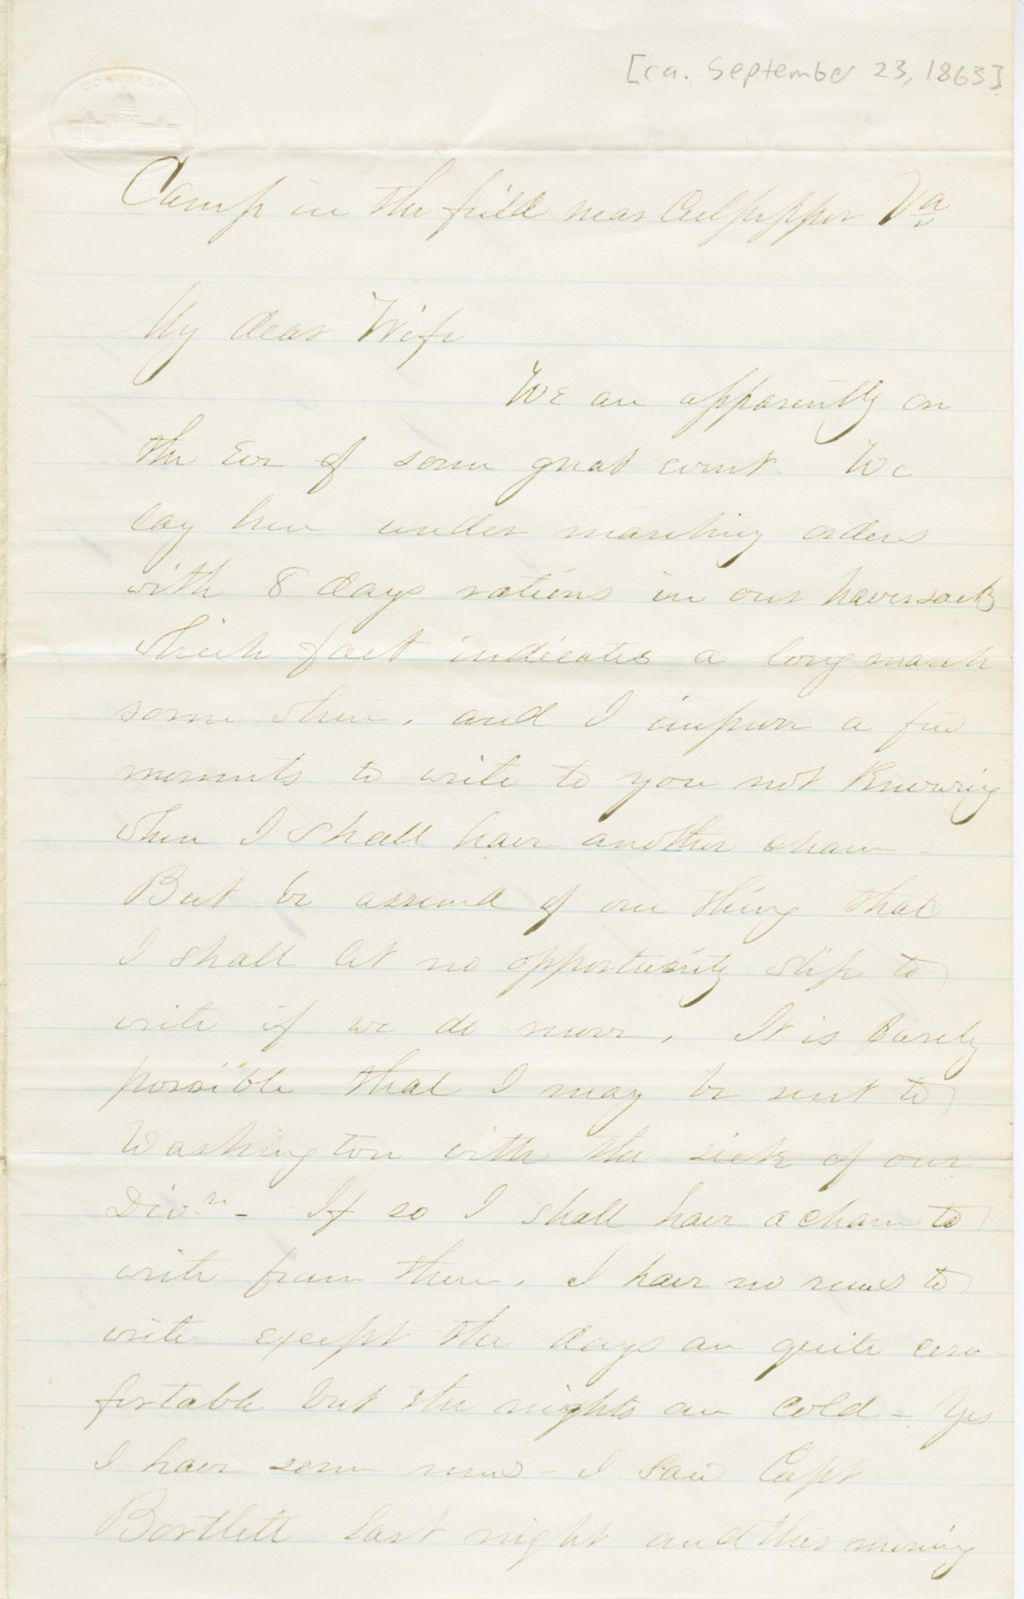 [ca. September 23, 1863]
CONGRESS
Camp in the field near Culpepper Va
My dear Wife
We are apparently on
the Eve of some great event. We
lay here under marching orders
with 8 days rations in our haversacks
which fact indicates a long march
some where, and I improve a few
moments to write to you not Knowing
when I shall have another chance -
But be assured of one thing that
I shall let no opportunity slip to
write if we do move. It is barely
possible that I may be sent to
Washington with the sick of our
Divn - If so I shall have a chance to
write from there. I have no news to
write except the days are quite com-
fortable but the nights are cold - Yes
I have some news - I saw Capt
Bartlett last night and this morning